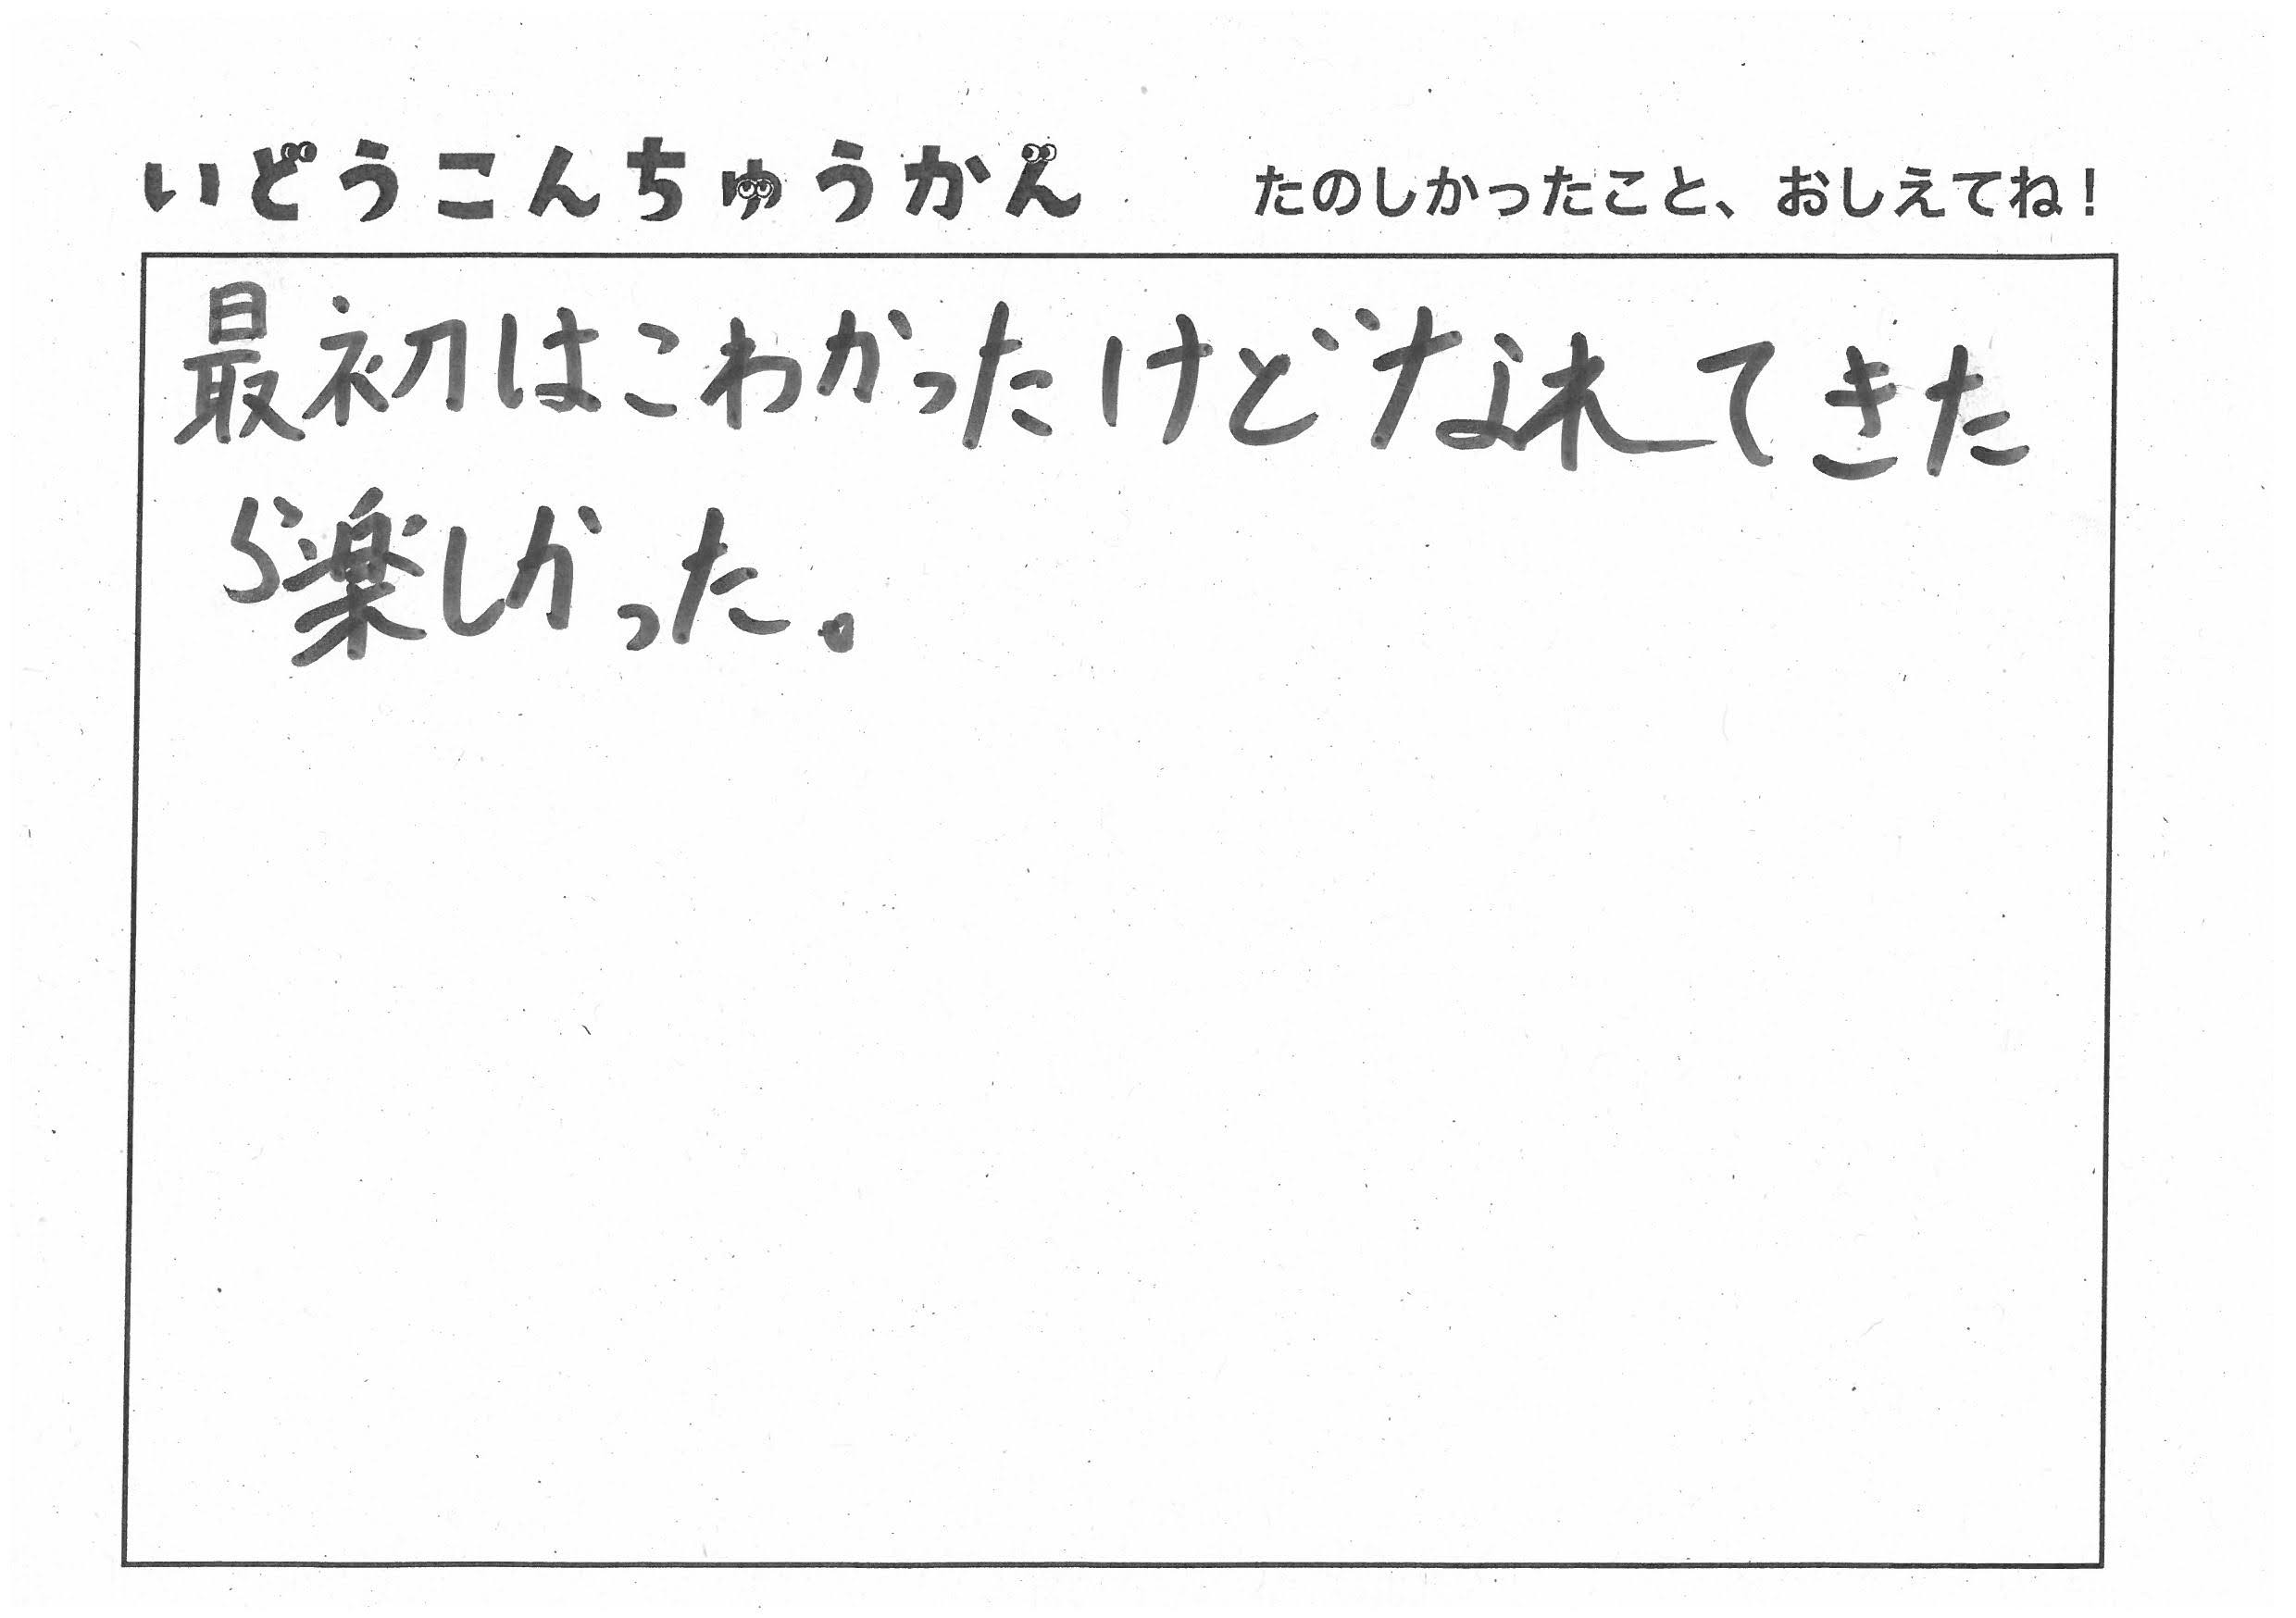 いどうこんちゅうかん たのしかったこと、おしえてね！
最初はこわかったけどなれてきた
ら楽しかった。